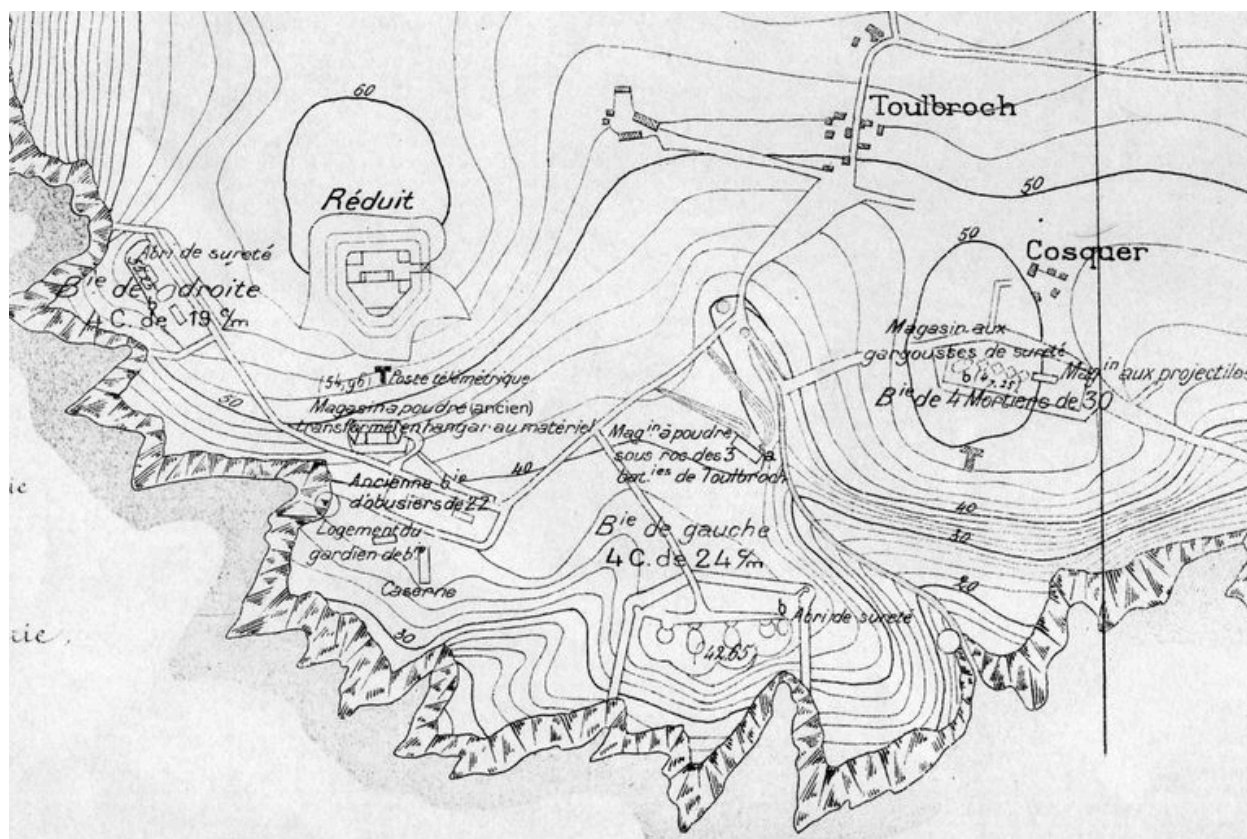 60
Toulbroch
50
Réduit
50
Cosquer
Abri de sureté
Bie de droite
4 C. de 19 c/m
Magasin aux
gargousses de sureté
Magin aux projectiles
b (47,25)
Bie de 4 Mortiers de 30
(54,96) Poste télémétrique
50
Magasin a poudre (ancien)
transformé en hangar au matériel
Magin à poudre
sous roc des 3 a
bat.ies de Toulbroch
40
Ancienne bie
d'obusiers de 22
40
30
Logement du
gardien de bie
Bie de gauche
4 C. de 24 c/m
Caserne
20
30
b Abri de sureté
42,65
rie